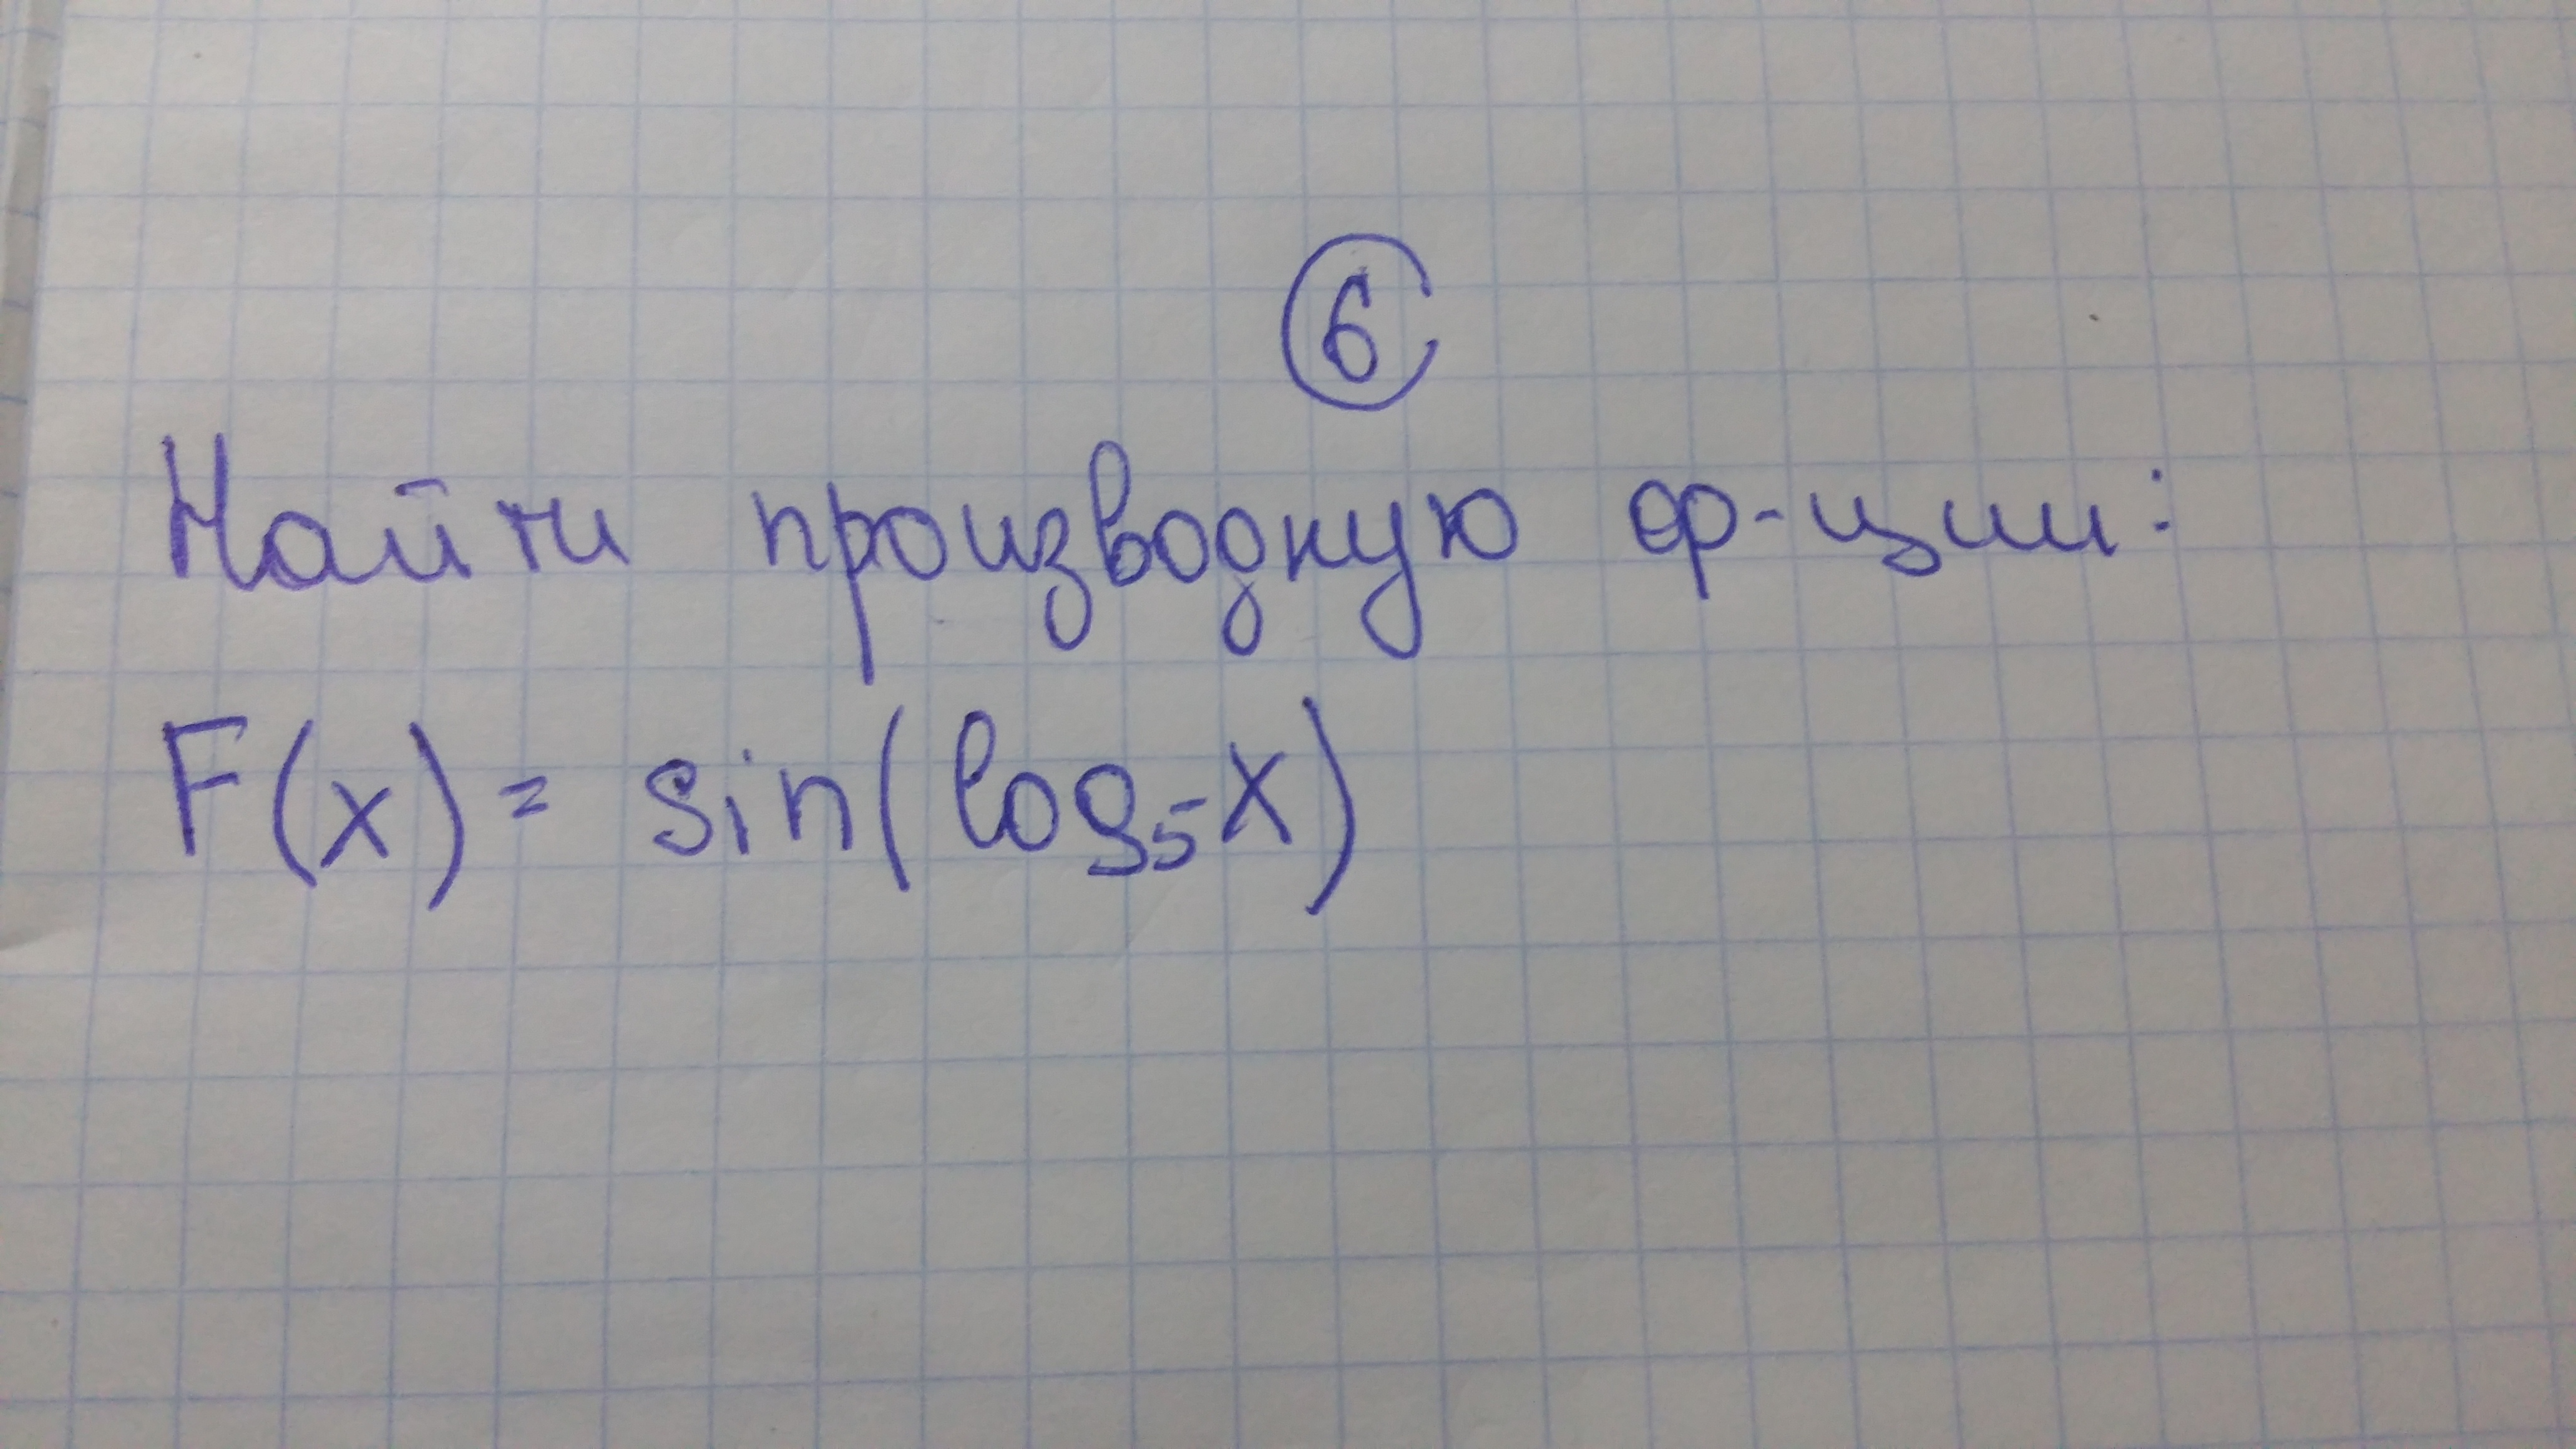 6
Найти производную ф-ции:
F(x) = sin(log₅x)